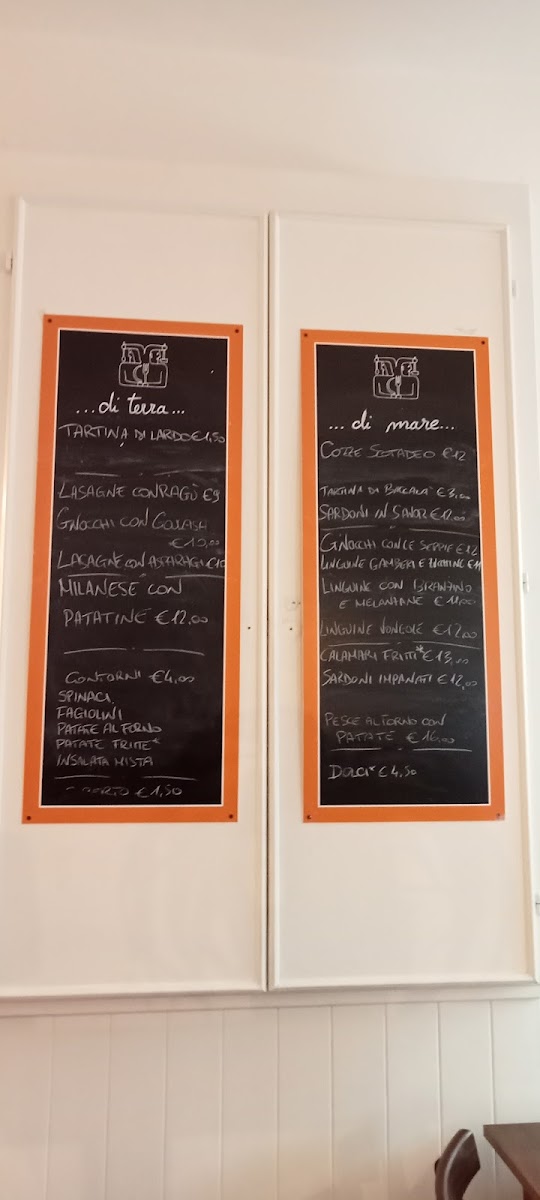 ...di terra...
TARTINA DI LARDO €1,50
LASAGNE CON RAGÙ €9
GNOCCHI CON GOULASH
€10,00
LASAGNE CON ASPARAGI €10
MILANESE CON
PATATINE €12,00
CONTORNI €4,00
SPINACI
FAGIOLINI
PATATE AL FORNO
PATATE FRITTE*
INSALATA MISTA
€1,50
... di mare...
COZZE SCOTADEO €12
TARTINA DI BACCALÀ €3,00
SARDONI IN SAVOR €12,00
GNOCCHI CON LE SEPPIE €12
LINGUINE GAMBERI E ZUCCHINE €11
LINGUINE CON BRANZINO
E MELANZANE €11,00
LINGUINE VONGOLE €12,00
CALAMARI FRITTI* €13,00
SARDONI IMPANATI €12,00
PESCE AL FORNO CON
PATATE €16,00
DOLCI* €4,50